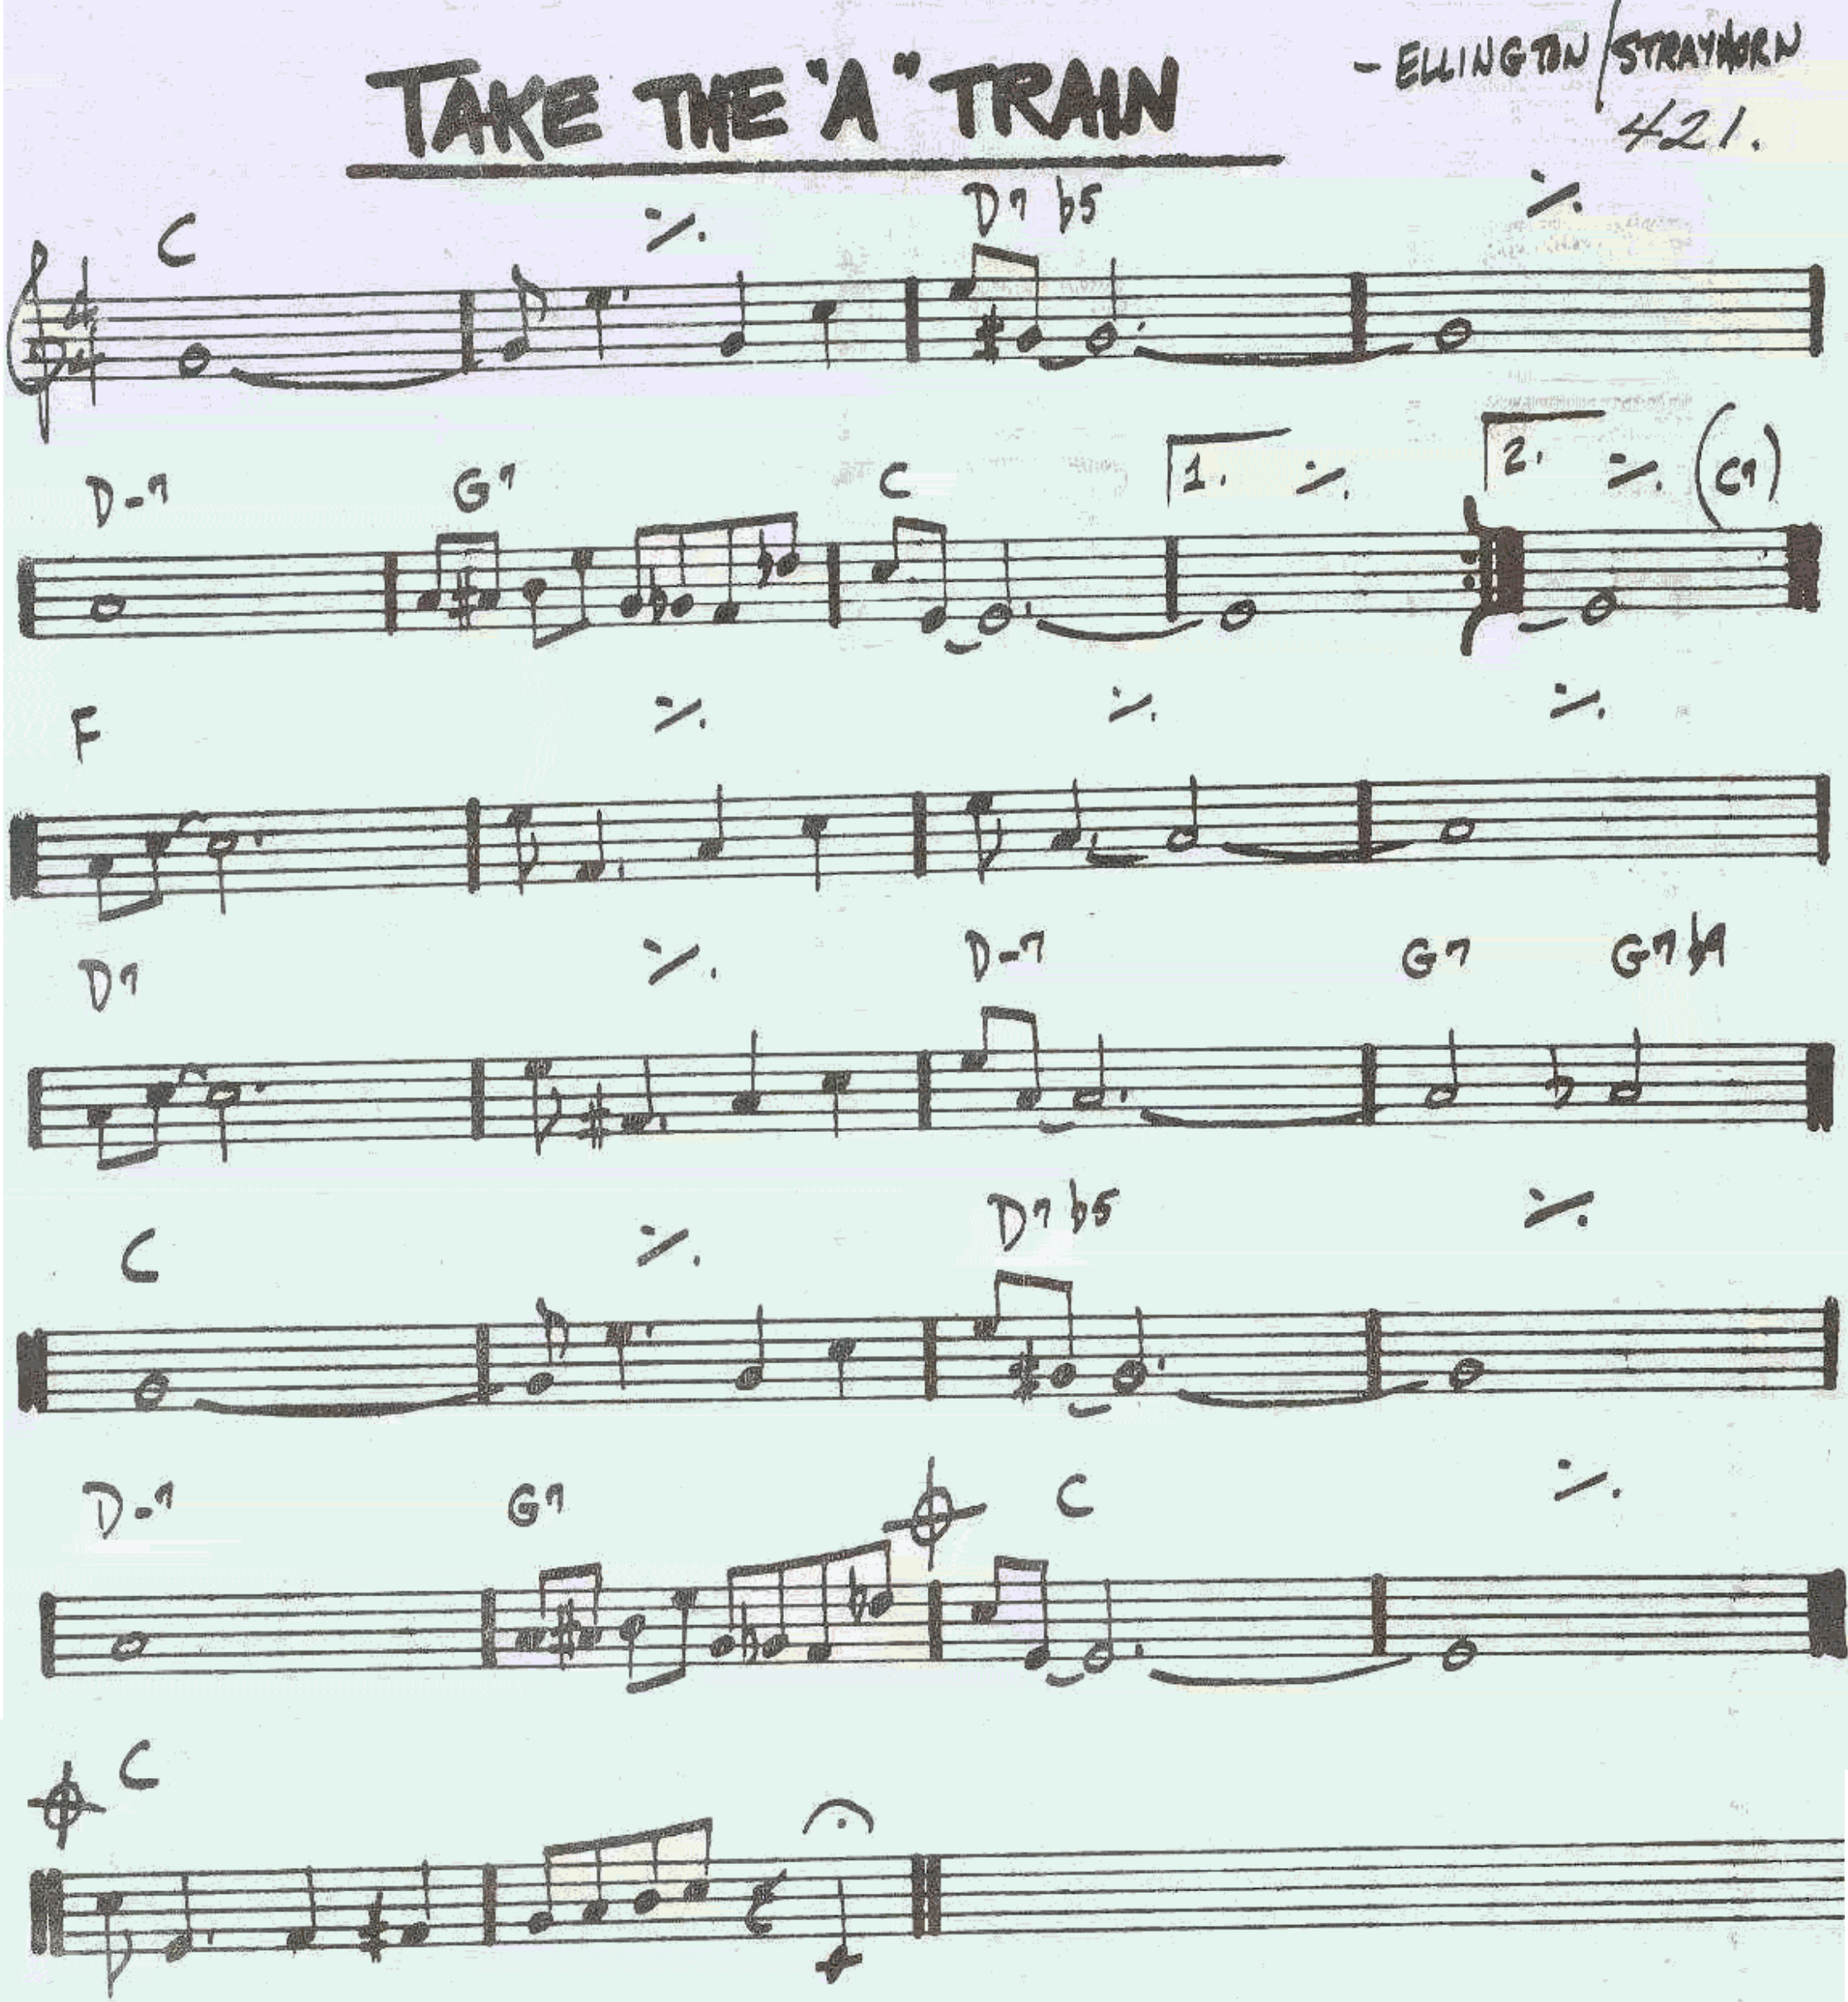 TAKE THE "A" TRAIN
- ELLINGTON/STRAYHORN
421.
C 𝄎 D7 b5 𝄎
4
4
D-7 G7 C 1. 𝄎 2. 𝄎 (C7)
F 𝄎 𝄎 𝄎
D7 𝄎 D-7 G7 G7 b9
C 𝄎 D7 b5 𝄎
D-7 G7 C 𝄎
C